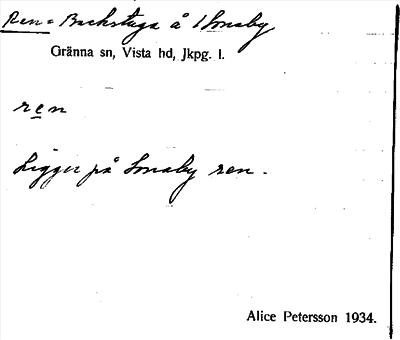 Ren = Backstuga å Smaby
Gränna sn, Vista hd, Jkpg. l.
ren
Ligger på Smaby ren.
Alice Petersson 1934.